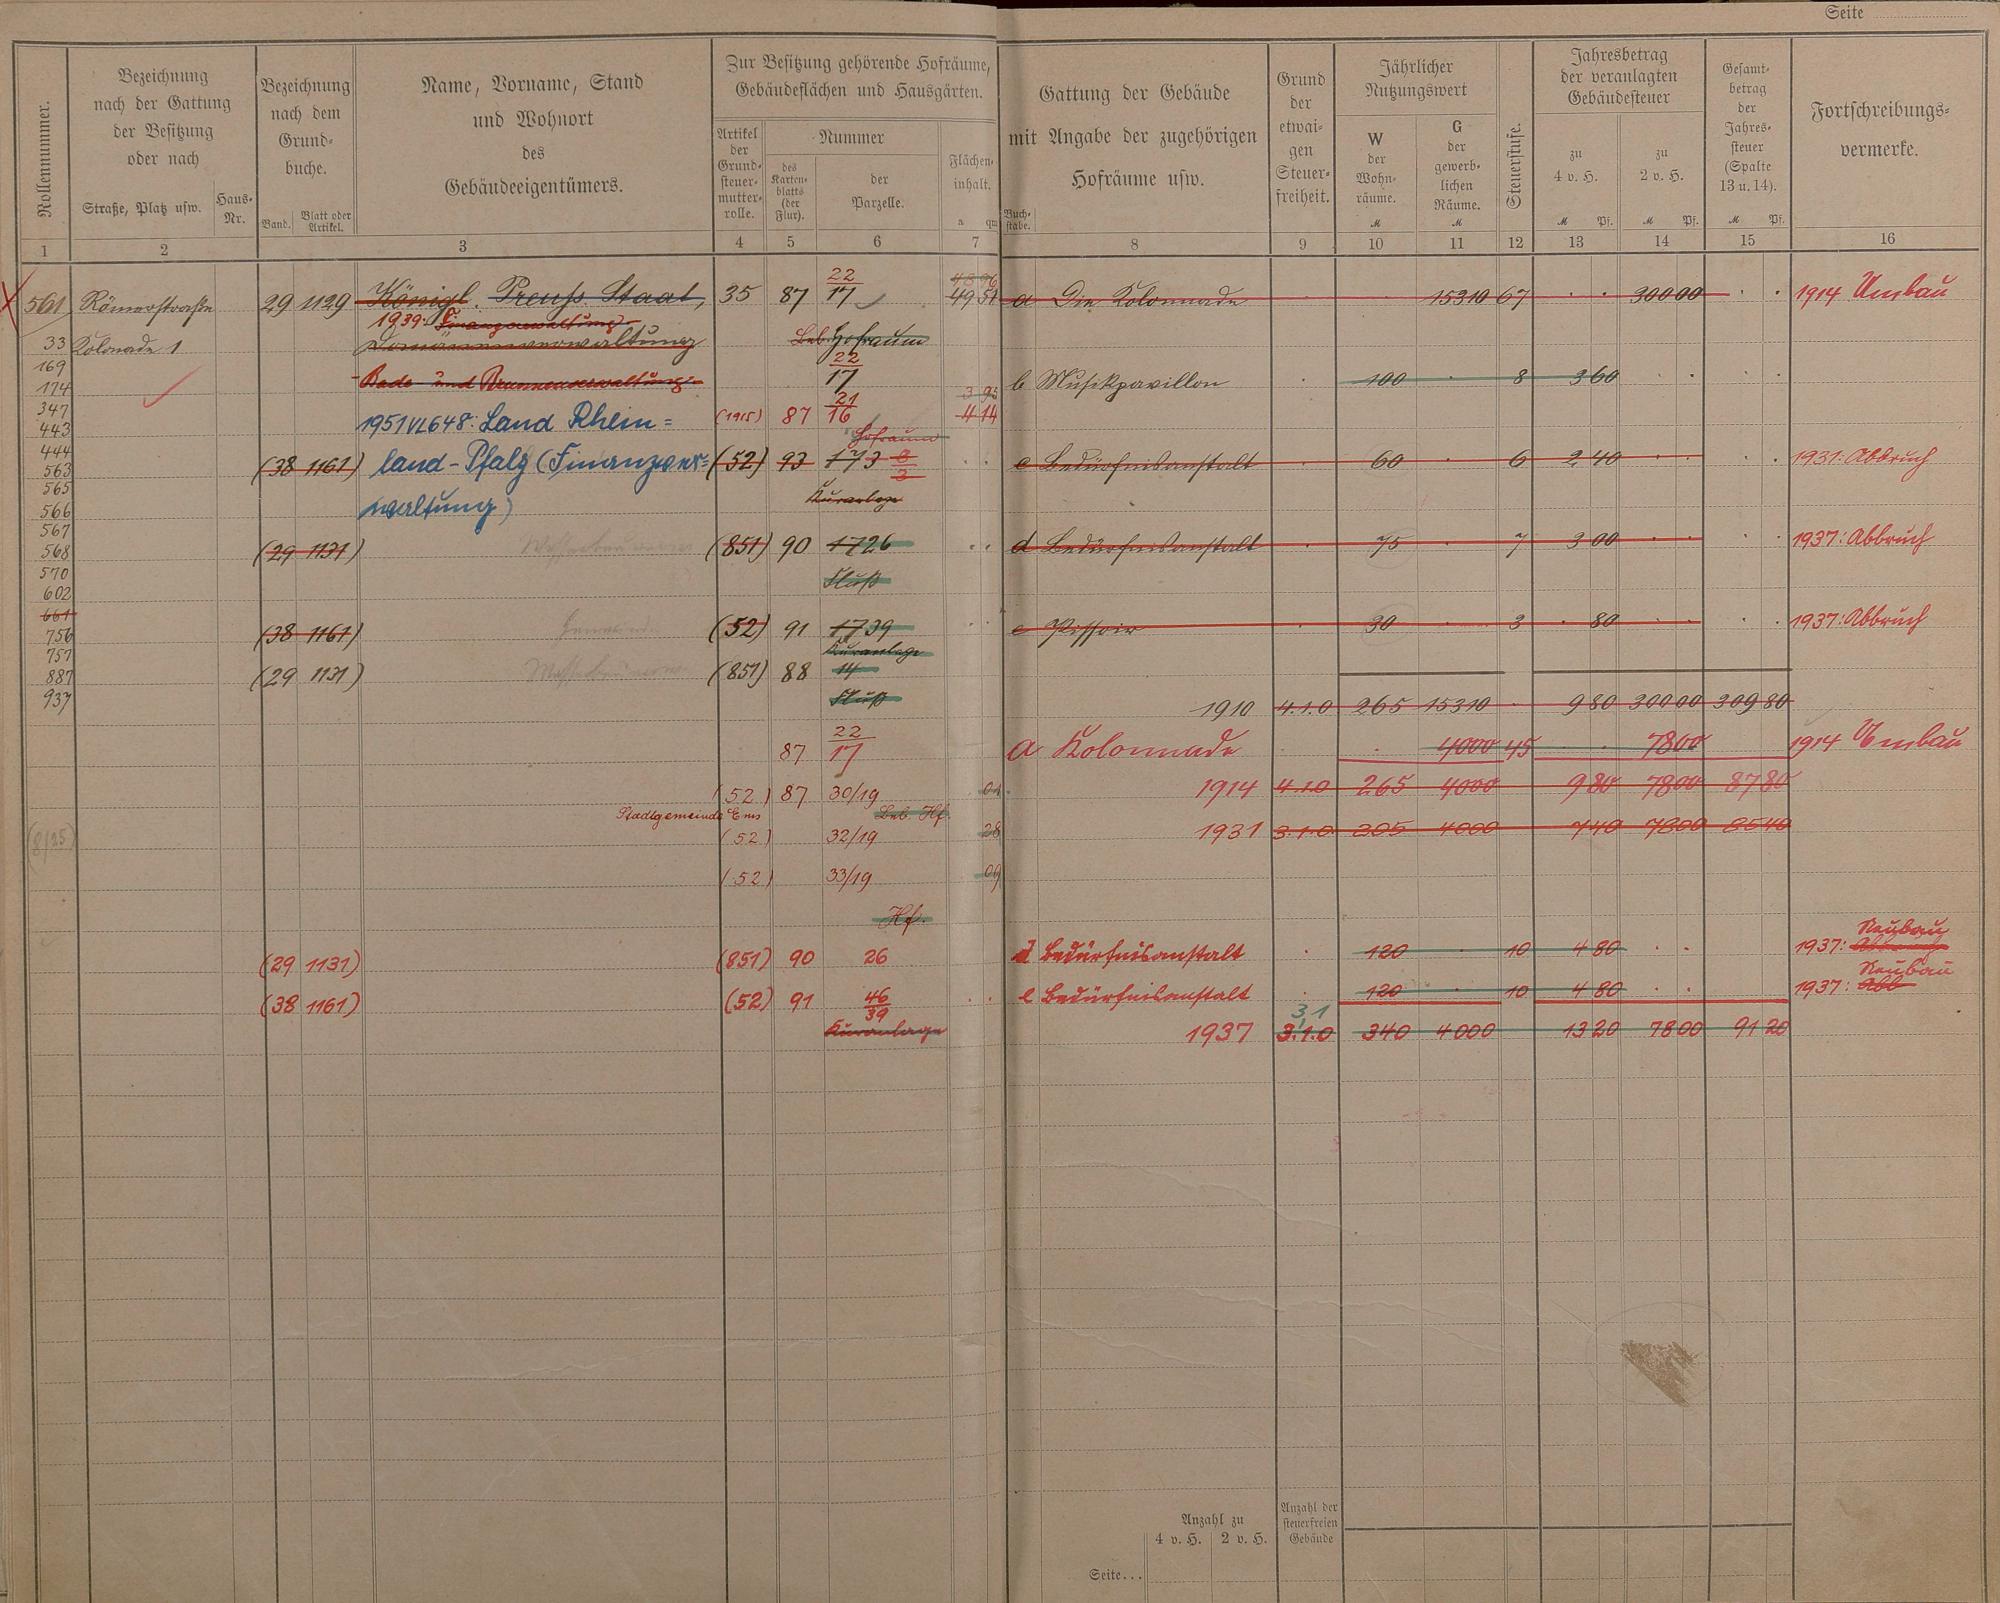 Seite
Rollennummer.
Bezeichnung
nach der Gattung
der Besitzung
oder nach
Straße, Platz usw.
Haus-
Nr.
Bezeichnung
nach dem
Grund-
buche.
Band.
Blatt oder
Artikel.
Name, Vorname, Stand
und Wohnort
des
Gebäudeeigentümers.
Zur Besitzung gehörende Hofräume,
Gebäudeflächen und Hausgärten.
Artikel
der
Grund-
steuer-
mutter-
rolle.
Nummer
des
Karten-
blatts
(der
Flur).
der
Parzelle.
Flächen-
inhalt.
a qm
Buch-
stabe.
Gattung der Gebäude
mit Angabe der zugehörigen
Hofräume usw.
Grund
der
etwai-
gen
Steuer-
freiheit.
Jährlicher
Nutzungswert
W
der
Wohn-
räume.
M
G
der
gewerb-
lichen
Räume.
M
Steuerstufe.
Jahresbetrag
der veranlagten
Gebäudesteuer
zu
4 v. H.
M Pf.
zu
2 v. H.
M Pf.
Gesamt-
betrag
der
Jahres-
steuer
(Spalte
13 u. 14).
M Pf.
Fortschreibungs-
vermerke.
1 2 3 4 5 6 7 8 9 10 11 12 13 14 15 16
561 Römerstraße 29 1129 Königl. Preuß. Staat, 35 87 22/17 49 51 a Die Kolonnade 15310 67 300 00 1914 Umbau
1939: Finanzverwaltung
33 Kolonade 1 Domänenverwaltung Beb. Hofraum
169
174 Bade- und Brunnenverwaltung 22/17 b Musikpavillon 100 8 3 60
3 93
347
443 1951 VL 648: Land Rhein= (1915) 87 21/16 4 14
Hofraum
444
563 (38 1161) land-Pfalz (Finanzver= (52) 93 173 c Bedürfnisanstalt 60 6 2 40 1931: Abbruch
565 Kuranlage
566 waltung)
567
568 (29 1131) (851) 90 1726 d Bedürfnisanstalt 75 7 3 00 1937: Abbruch
570 Fluß
602
661
756 (38 1161) (52) 91 1739 e Pissoir 30 3 80 1937: Abbruch
757 Kuranlage
887 (29 1131) (851) 88 14
937 Fluß
1910 4.1.0 265 15310 9 80 300 00 309 80
87 22/17 a Kolonnade 4000 45 78 00 1914 Umbau
(52) 87 30/19 04 1914 4.1.0 265 4000 9 80 78 00 87 80
Stadtgemeinde Ems Beb. Hf.
(52) 32/19 28 1931 3.1.0 205 4000 7 40 78 00 85 40
(8/25)
(52) 33/19 09
Hf.
(29 1131) (851) 90 26 d Bedürfnisanstalt 120 10 4 80 1937: Neubau
(38 1161) (52) 91 46/39 e Bedürfnisanstalt 120 10 4 80 1937: Neubau
Kuranlage
3,1
1937 3.1.0 340 4000 13 20 78 00 91 20
Anzahl zu
4 v. H. 2 v. H.
Anzahl der
steuerfreien
Gebäude
Seite...